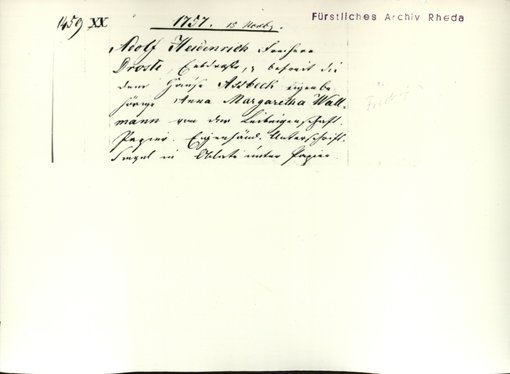 1459 XX
1757. 15 Novbr.
Fürstliches Archiv Rheda
Adolf Heidenreich Freiherr
Droste, befreit die
dem Hause Assbeck eigenbe
hörige Anna Margaretha Wall-
mann von der Leibeigenschaft.
Papier. Eigenhänd. Unterschrift.
Siegel in Oblate unter Papier.